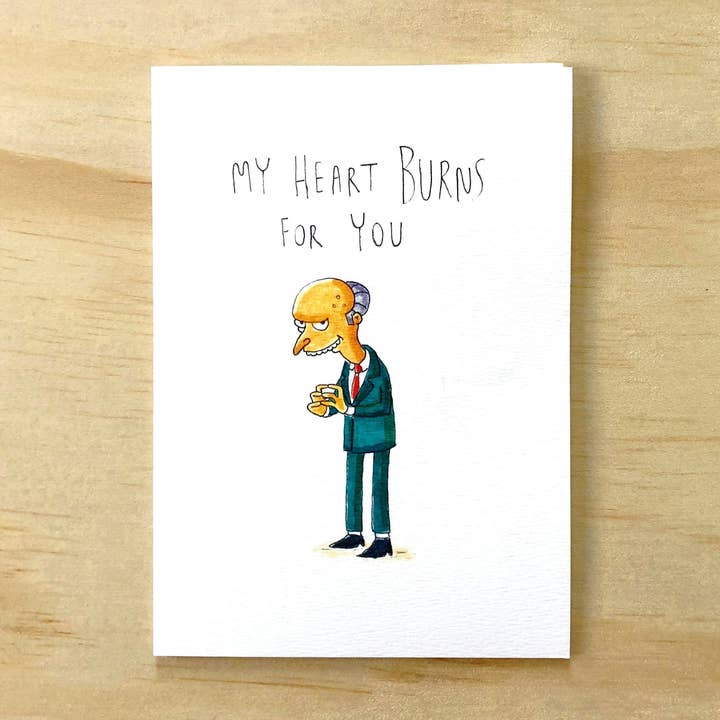 MY HEART BURNS
FOR YOU